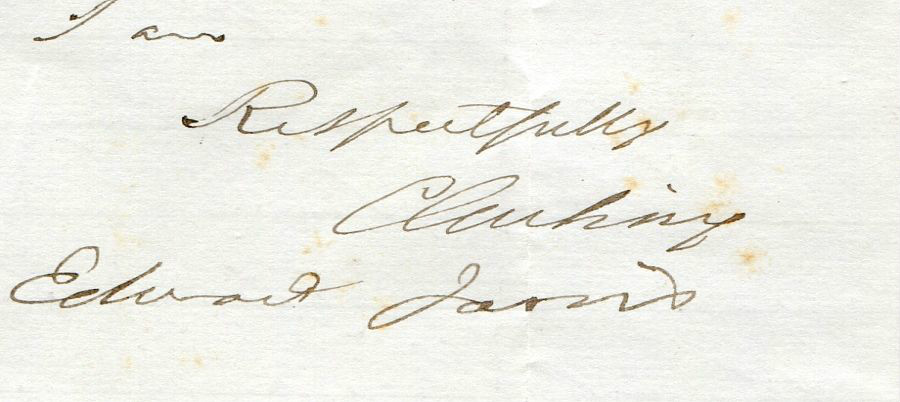 I am
Respectfully
Edward Jarvis